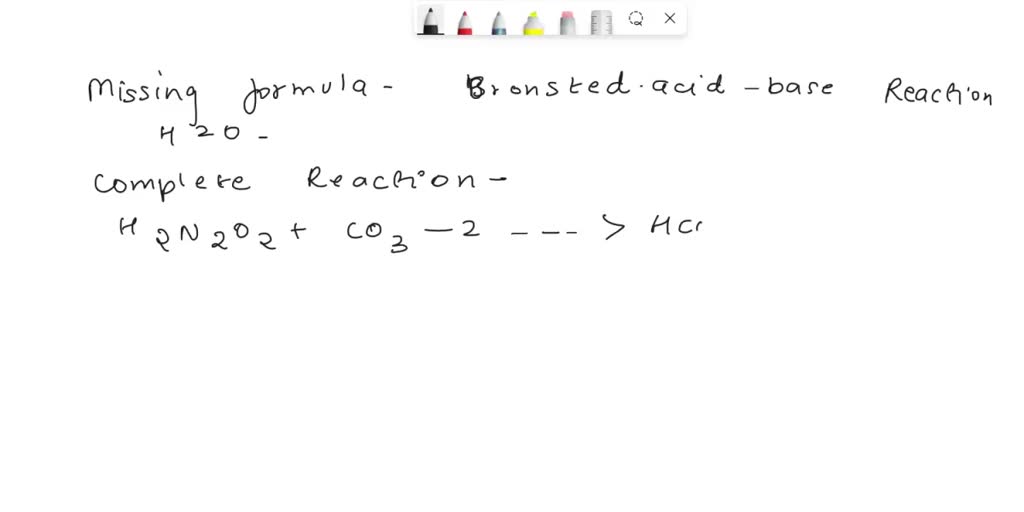 Missing formula - Bronsted.acid - base Reaction
H2O -
complete Reaction -
H2N2O2 + CO3 - 2 - - - > HCO